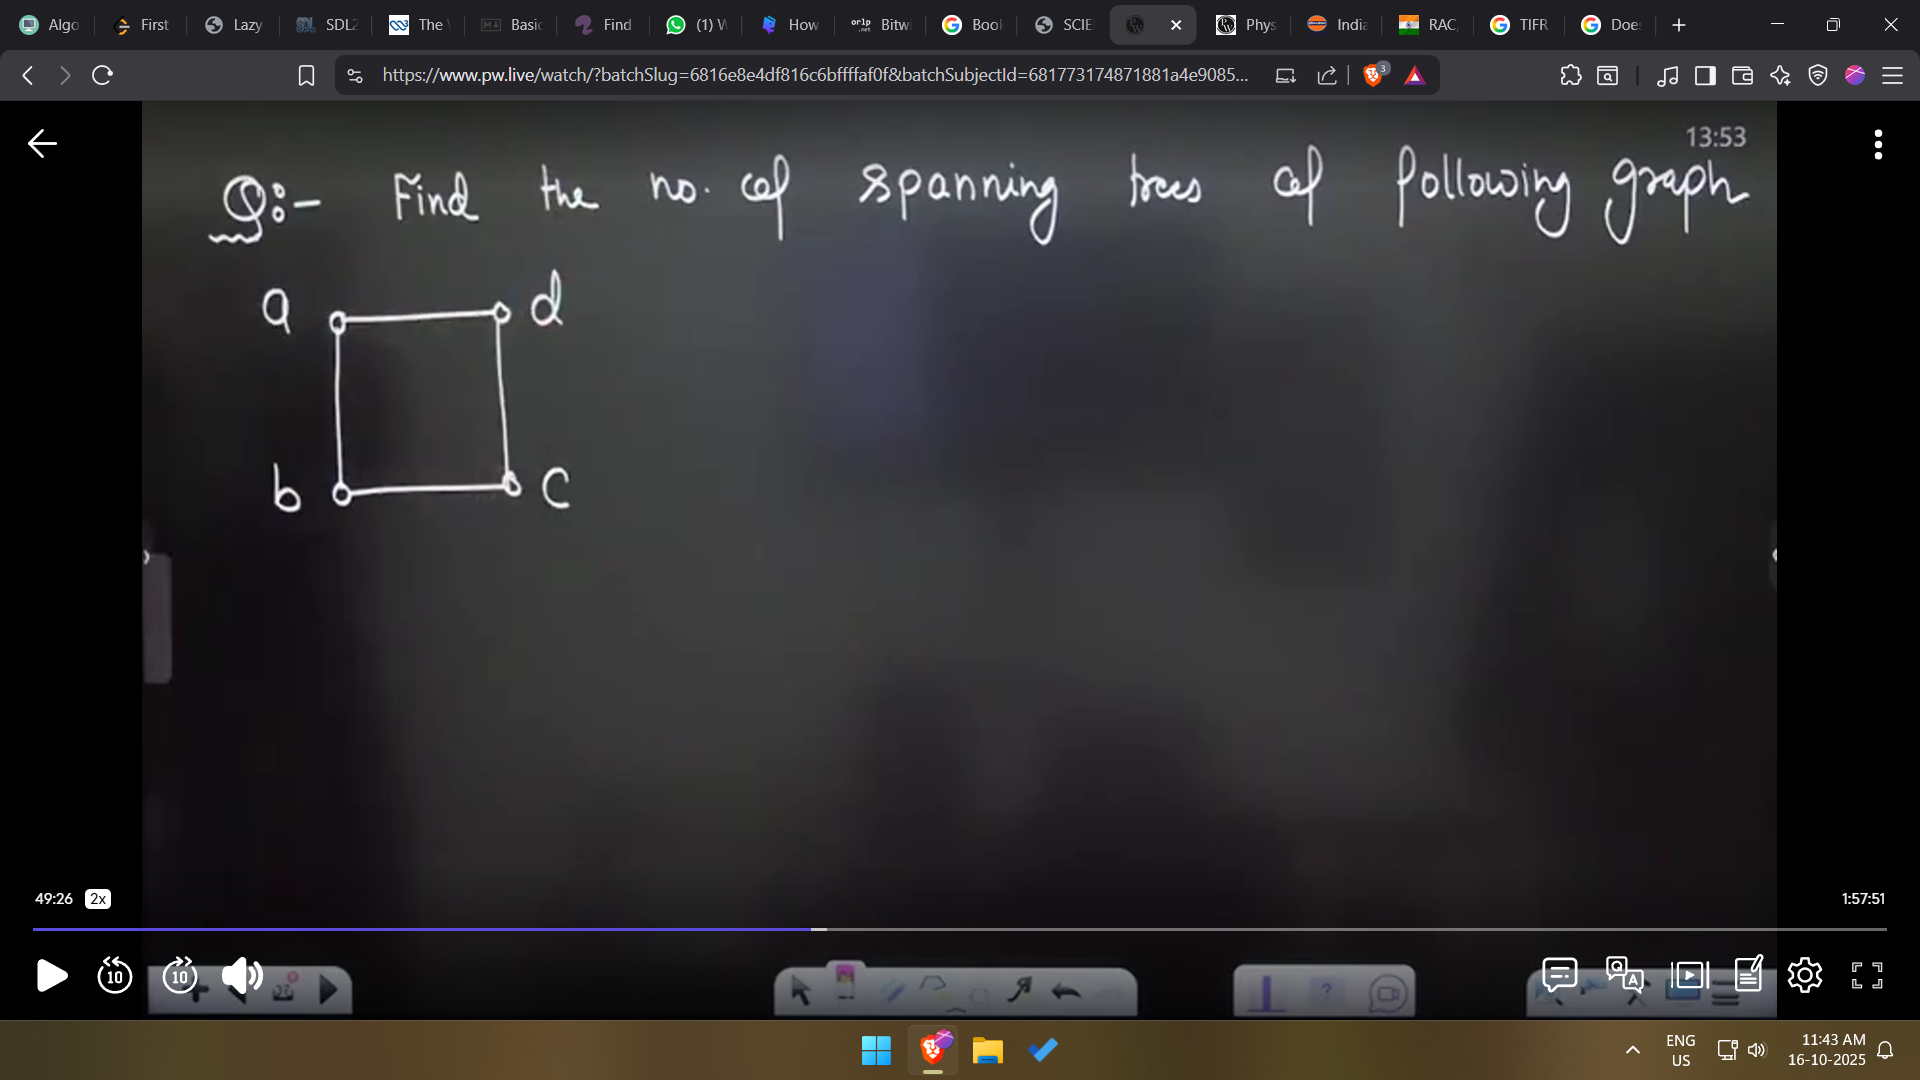 Algo First Lazy SDL2 The Basic Find (1) How Bitwi Book SCIE Phys India RAC, TIFR Does
https://www.pw.live/watch/?batchSlug=6816e8e4df816c6bffffaf0f&batchSubjectId=681773174871881a4e9085... 3
13:53
Q:- Find the no. of spanning trees of following graph
a d
b c
49:26 2x 1:57:51
10 10
ENG 11:43 AM
US 16-10-2025